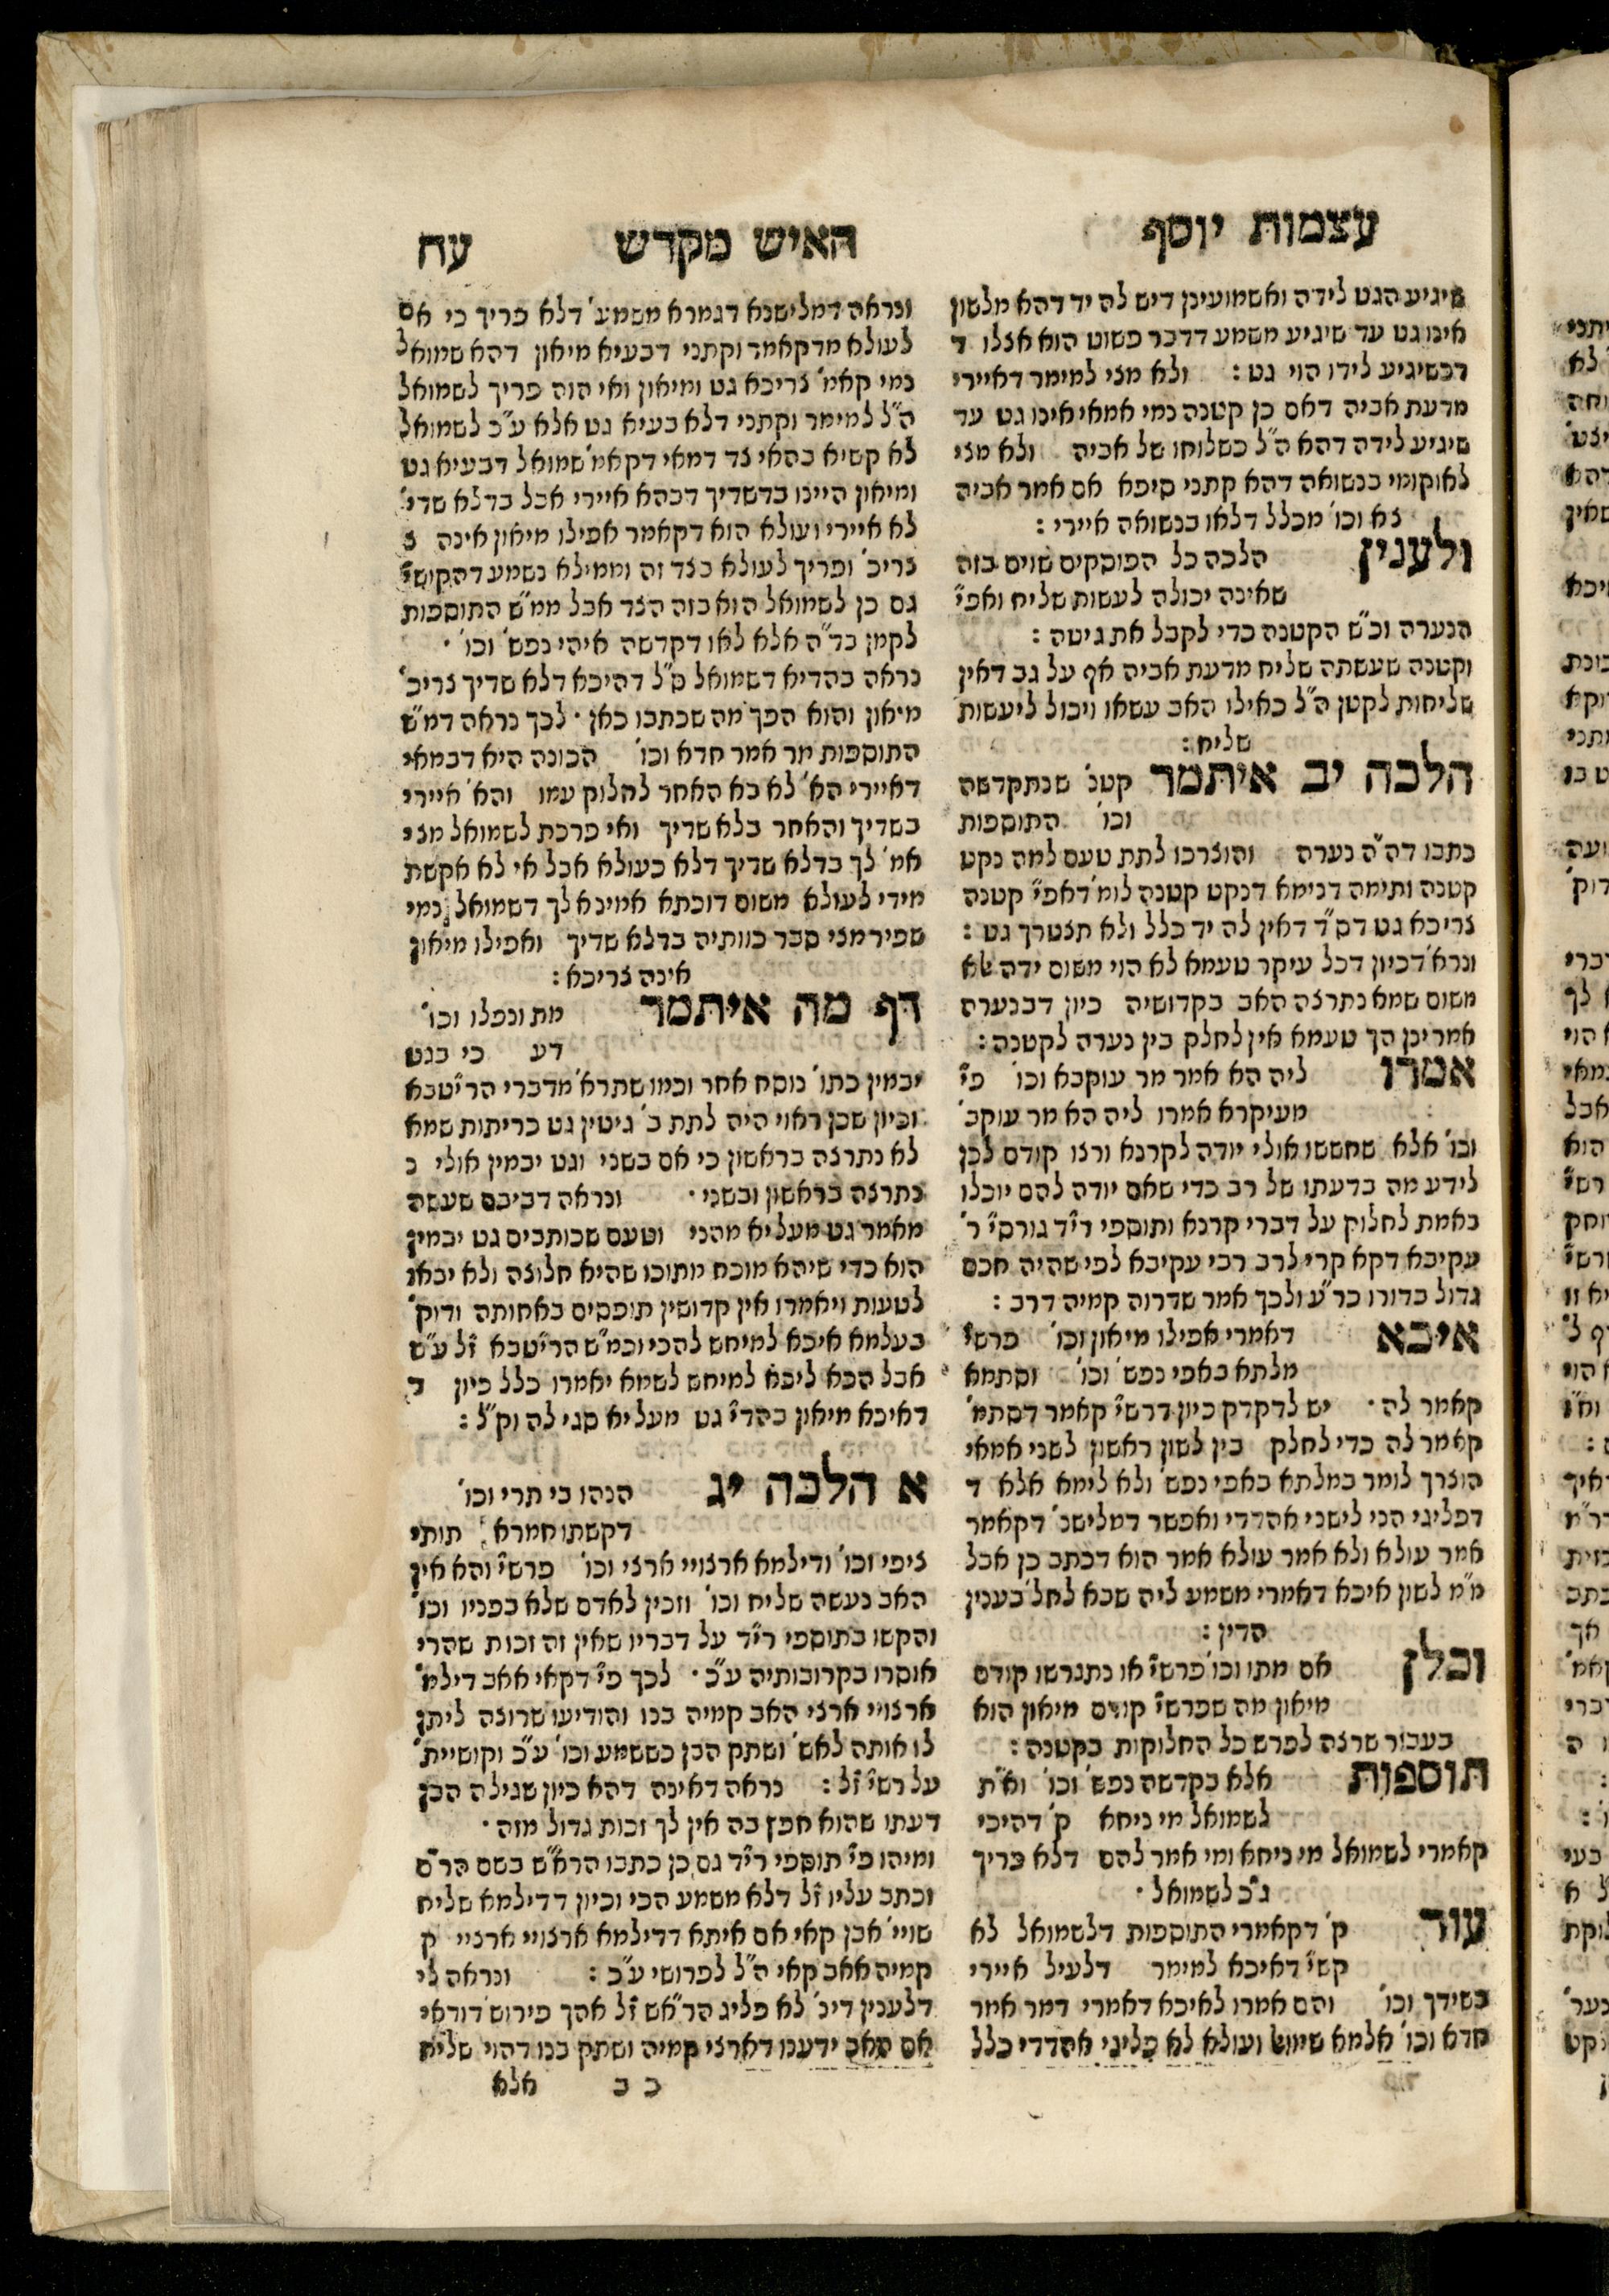 עצמות יוסף
האיש מקדש
עח
שיגיע הגט לידה ואשמועינן דיש לה יד דהא מלשון
אינו גט עד שיגיע משמע דדבר פשוט הוא אצלו ד
דכשיגיע לידו הוי גט : ולא מצי למימר דאיירי
מדעת אביה דאם כן קטנה נמי אמאי אינו גט עד
שיגיע לידה דהא ה"ל כשלוחו של אביה ולא מצי
לאוקומי בנשואה דהא קתני סיפא אם אמר אביה
צא וכו' מכלל דלאו בנשואה איירי :
ולענין הלכה כל הפוסקים שוים בזה
שאינה יכולה לעשות שליח ואפי'
הנערה וכ"ש הקטנה כדי לקבל את גיטה :
וקטנה שעשתה שליח מדעת אביה אף על גב דאין
שליחות לקטן ה"ל כאילו האב עשאו ויכול ליעשות
שליח :
הלכה יב איתמר קטנ' שנתקדשה
וכו' התוספות
כתבו דה"ה נערה והוצרכו לתת טעם למה נקט
קטנה ותימה דנימא דנקט קטנה לומ' דאפי' קטנה
צריכא גט דס"ד דאין לה יד כלל ולא תצטרך גט :
ונרא' דכיון דכל עיקר טעמא לא הוי משום ידה אלא
משום שמא נתרצה האב בקדושיה כיון דבנערה
אמרינן הך טעמא אין לחלק בין נערה לקטנה :
אמרו ליה הא אמר מר עוקבא וכו' פי'
מעיקרא אמרו ליה הא מר עוקב'
וכו' אלא שחששו אולי יודה לקרנא ורצו קודם לכן
לידע מה בדעתו של רב כדי שאם יודה להם יוכלו
באמת לחלוק על דברי קרנא ותוספי רי"ד גורס"י ר'
עקיבא דקא קרי לרב רבי עקיבא לפי שהיה חכם
גדול בדורו כר"ע ולכך אמר שדרוה קמיה דרב :
איכא דאמרי אפילו מיאון וכו' פרש"י
מלתא באפי נפש' וכו' וסתמא
קאמר לה · יש לדקדק כיון דרש"י קאמר דסתמ'
קאמר לה כדי לחלק בין לשון ראשון לשני אמאי
הוצרך לומר במלתא באפי נפש' ולא לימא אלא ד
דפליגי הני לישני אהדדי ואפשר דמלישנ' דקאמר
אמר עולא ולא אמר עולא אמר הוא דכתב כן אבל
מ"מ לשון איכא דאמרי משמע ליה שבא לחל' בענין
הדין :
וכלן אם מתו וכו' פרש"י או נתגרשו קודם
מיאון מה שפרש"י קודם מיאון הוא
בעבור שרצה לפרש כל החלוקות בקטנה :
תוספות אלא בקדשה נפש' וכו' וא"ת
לשמואל מי ניחא ק' דהיכי
קאמרי לשמואל מי ניחא ומי אמר להם דלא פריך
ג"כ לשמואל ·
עוד ק' דקאמרי התוספות דלשמואל לא
קש"י דאיכא למימר דלעיל איירי
בשידך וכו' והם אמרו לאיכא דאמרי דמר אמר
חדא וכו' אלמא שמוא' ועולא לא פליגי אהדדי כלל
ונראה דמלישנא דגמרא משמע' דלא פריך כי אם
לעולא מדקאמר וקתני דבעיא מיאון דהא שמואל
נמי קאמ' צריכא גט ומיאון ואי הוה פריך לשמואל
ה"ל למימר וקתני דלא בעיא גט אלא ע"כ לשמואל
לא קשיא בהאי צד דמאי דקאמ' שמואל דבעיא גט
ומיאון היינו בדשדיך דבהא איירי אבל בדלא שדי'
לא איירי ועולא הוא דקאמר אפילו מיאון אינה צ
צריכ' ופריך לעולא בצד זה וממילא נשמע דהקושי'
גם כן לשמואל הוא בזה הצד אבל ממ"ש התוספות
לקמן בד"ה אלא לאו דקדשה איהי נפש' וכו' ·
נראה בהדיא דשמואל ס"ל דהיכא דלא שדיך צריכ'
מיאון והוא הפך מה שכתבו כאן · לכך נראה דמ"ש
התוספות מר אמר חדא וכו' הכונה היא דבמאי
דאיירי הא' לא בא האחר לחלוק עמו והא' איירי
בשדיך והאחר בלא שדיך ואי פרכת לשמואל מצי
אמ' לך בדלא שדיך דלא כעולא אבל אי לא אקשת
מידי לעולא משום דוכתא אמינא לך דשמואל נמי
שפיר מצי סבר כוותיה בדלא שדיך ואפילו מיאון
אינה צריכא :
דף מה איתמר מת ונפלו וכו'
דע כי בגט
יבמין כתו' נוסח אחר וכמו שתרא' מדברי הריטב"א
וכיון שכן ראוי היה לתת ב' גיטין גט כריתות שמא
לא נתרצה בראשון כי אם בשני וגט יבמין אולי נ
נתרצה בראשון ובשני · ונראה דביבם שעשה
מאמר גט מעליא מהני וטעם שכותבים גט יבמין
הוא כדי שיהא מוכח מתוכו שהיא חלוצה ולא יבאו
לטעות ויאמרו אין קדושין תופסים באחותה ודוק'
בעלמא איכא למיחש להכי וכמ"ש הריטב"א ז"ל ע"ש
אבל הכא ליכא למיחש לשמא יאמרו כלל כיון ד
דאיכא מיאון בהדי' גט מעליא סגי לה וק"ל :
א הלכה יג הנהו בי תרי וכו'
דקשתו חמרא תותי
ציפי וכו' ודילמא ארצויי ארצי וכו' פרש"י והא אין
האב נעשה שליח וכו' וזכין לאדם שלא בפניו וכו'
והקשו בתוספי רי"ד על דבריו שאין זה זכות שהרי
אוסרו בקרובותיה ע"כ · לכך פי' דקאי אאב דילמ'
ארצויי ארצי האב קמיה בנו והודיעו שרוצה ליתן
לו אותה לאש' ושתק הבן כששמע וכו' ע"כ וקושיית'
על רש"י ז"ל : נראה דאינה דהא כיון שגילה הבן
דעתו שהוא חפץ בה אין לך זכות גדול מזה ·
ומיהו פי' תוספי רי"ד גם כן כתבו הרא"ש בשם הר"ם
וכתב עליו ז"ל דלא משמע הכי וכיון דדילמא שליח
שויי' אבן קאי אם איתא דדילמא ארצויי ארציי ק
קמיה אאב קאי ה"ל לפרושי ע"כ : ונראה לי
דלענין דינ' לא פליג הרא"ש ז"ל אהך פירוש דודאי
אם האב ידענו דארצי קמיה ושתק בנו דהוי שליח
כ ב
אלא